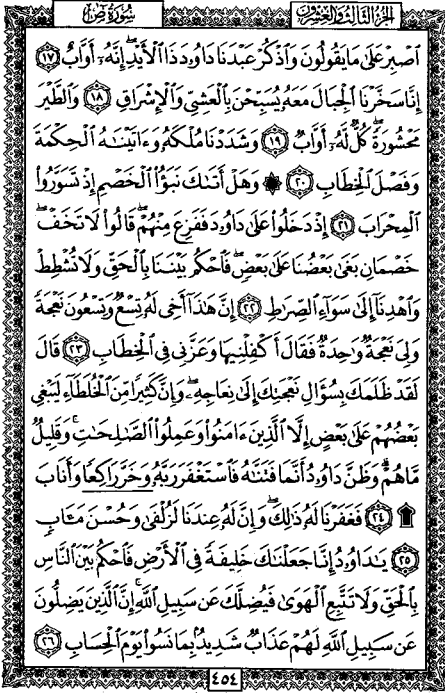 الجزء الثالث والعشرون سورة ص
ٱصْبِرْ عَلَىٰ مَا يَقُولُونَ وَٱذْكُرْ عَبْدَنَا دَاوُۥدَ ذَا ٱلْأَيْدِ ۖ إِنَّهُۥٓ أَوَّابٌ ١٧
إِنَّا سَخَّرْنَا ٱلْجِبَالَ مَعَهُۥ يُسَبِّحْنَ بِٱلْعَشِىِّ وَٱلْإِشْرَاقِ ١٨ وَٱلطَّيْرَ
مَحْشُورَةً ۖ كُلٌّ لَّهُۥٓ أَوَّابٌ ١٩ وَشَدَدْنَا مُلْكَهُۥ وَءَاتَيْنَٰهُ ٱلْحِكْمَةَ
وَفَصْلَ ٱلْخِطَابِ ٢٠ ۞ وَهَلْ أَتَىٰكَ نَبَؤُا۟ ٱلْخَصْمِ إِذْ تَسَوَّرُوا۟
ٱلْمِحْرَابَ ٢١ إِذْ دَخَلُوا۟ عَلَىٰ دَاوُۥدَ فَفَزِعَ مِنْهُمْ ۖ قَالُوا۟ لَا تَخَفْ ۖ
خَصْمَانِ بَغَىٰ بَعْضُنَا عَلَىٰ بَعْضٍ فَٱحْكُم بَيْنَنَا بِٱلْحَقِّ وَلَا تُشْطِطْ
وَٱهْدِنَآ إِلَىٰ سَوَآءِ ٱلصِّرَٰطِ ٢٢ إِنَّ هَٰذَآ أَخِى لَهُۥ تِسْعٌ وَتِسْعُونَ نَعْجَةً
وَلِىَ نَعْجَةٌ وَٰحِدَةٌ فَقَالَ أَكْفِلْنِيهَا وَعَزَّنِى فِى ٱلْخِطَابِ ٢٣ قَالَ
لَقَدْ ظَلَمَكَ بِسُؤَالِ نَعْجَتِكَ إِلَىٰ نِعَاجِهِۦ ۖ وَإِنَّ كَثِيرًا مِّنَ ٱلْخُلَطَآءِ لَيَبْغِى
بَعْضُهُمْ عَلَىٰ بَعْضٍ إِلَّا ٱلَّذِينَ ءَامَنُوا۟ وَعَمِلُوا۟ ٱلصَّٰلِحَٰتِ وَقَلِيلٌ
مَّا هُمْ ۗ وَظَنَّ دَاوُۥدُ أَنَّمَا فَتَنَّٰهُ فَٱسْتَغْفَرَ رَبَّهُۥ وَخَرَّ رَاكِعًا وَأَنَابَ
۩ ٢٤ فَغَفَرْنَا لَهُۥ ذَٰلِكَ ۖ وَإِنَّ لَهُۥ عِندَنَا لَزُلْفَىٰ وَحُسْنَ مَـَٔابٍ
٢٥ يَٰدَاوُۥدُ إِنَّا جَعَلْنَٰكَ خَلِيفَةً فِى ٱلْأَرْضِ فَٱحْكُم بَيْنَ ٱلنَّاسِ
بِٱلْحَقِّ وَلَا تَتَّبِعِ ٱلْهَوَىٰ فَيُضِلَّكَ عَن سَبِيلِ ٱللَّهِ ۚ إِنَّ ٱلَّذِينَ يَضِلُّونَ
عَن سَبِيلِ ٱللَّهِ لَهُمْ عَذَابٌ شَدِيدٌۢ بِمَا نَسُوا۟ يَوْمَ ٱلْحِسَابِ ٢٦
٤٥٤